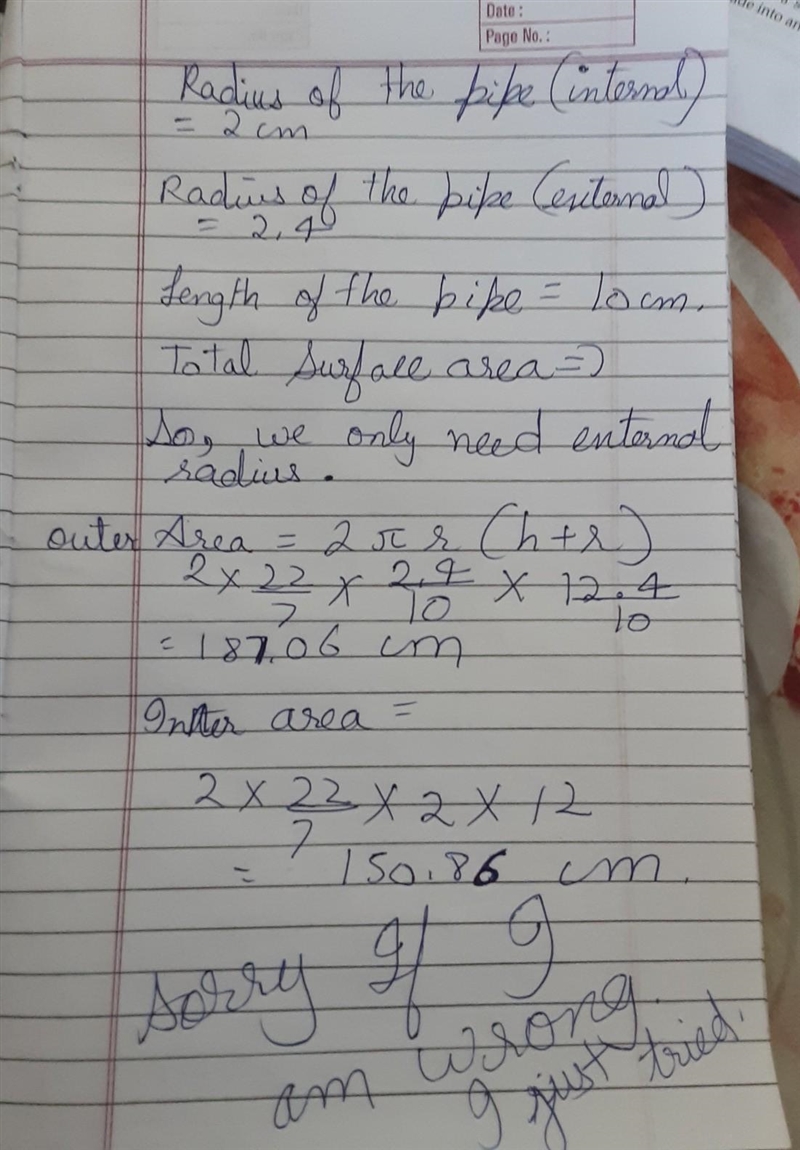 Date :
Page No. :
de into an
Radius of the pipe (internal)
= 2 cm
Radius of the pipe (external)
= 2.4
Length of the pipe = 10 cm.
Total Surface area =>
So, we only need enternal
radius.
outer Area = 2 π r (h+r)
2 × 22/7 × 2.4/10 × 12.4/10
= 187.06 cm
Inner area =
2 × 22/7 × 2 × 12
= 150.86 cm.
Sorry If I
am wrong.
I just tried.